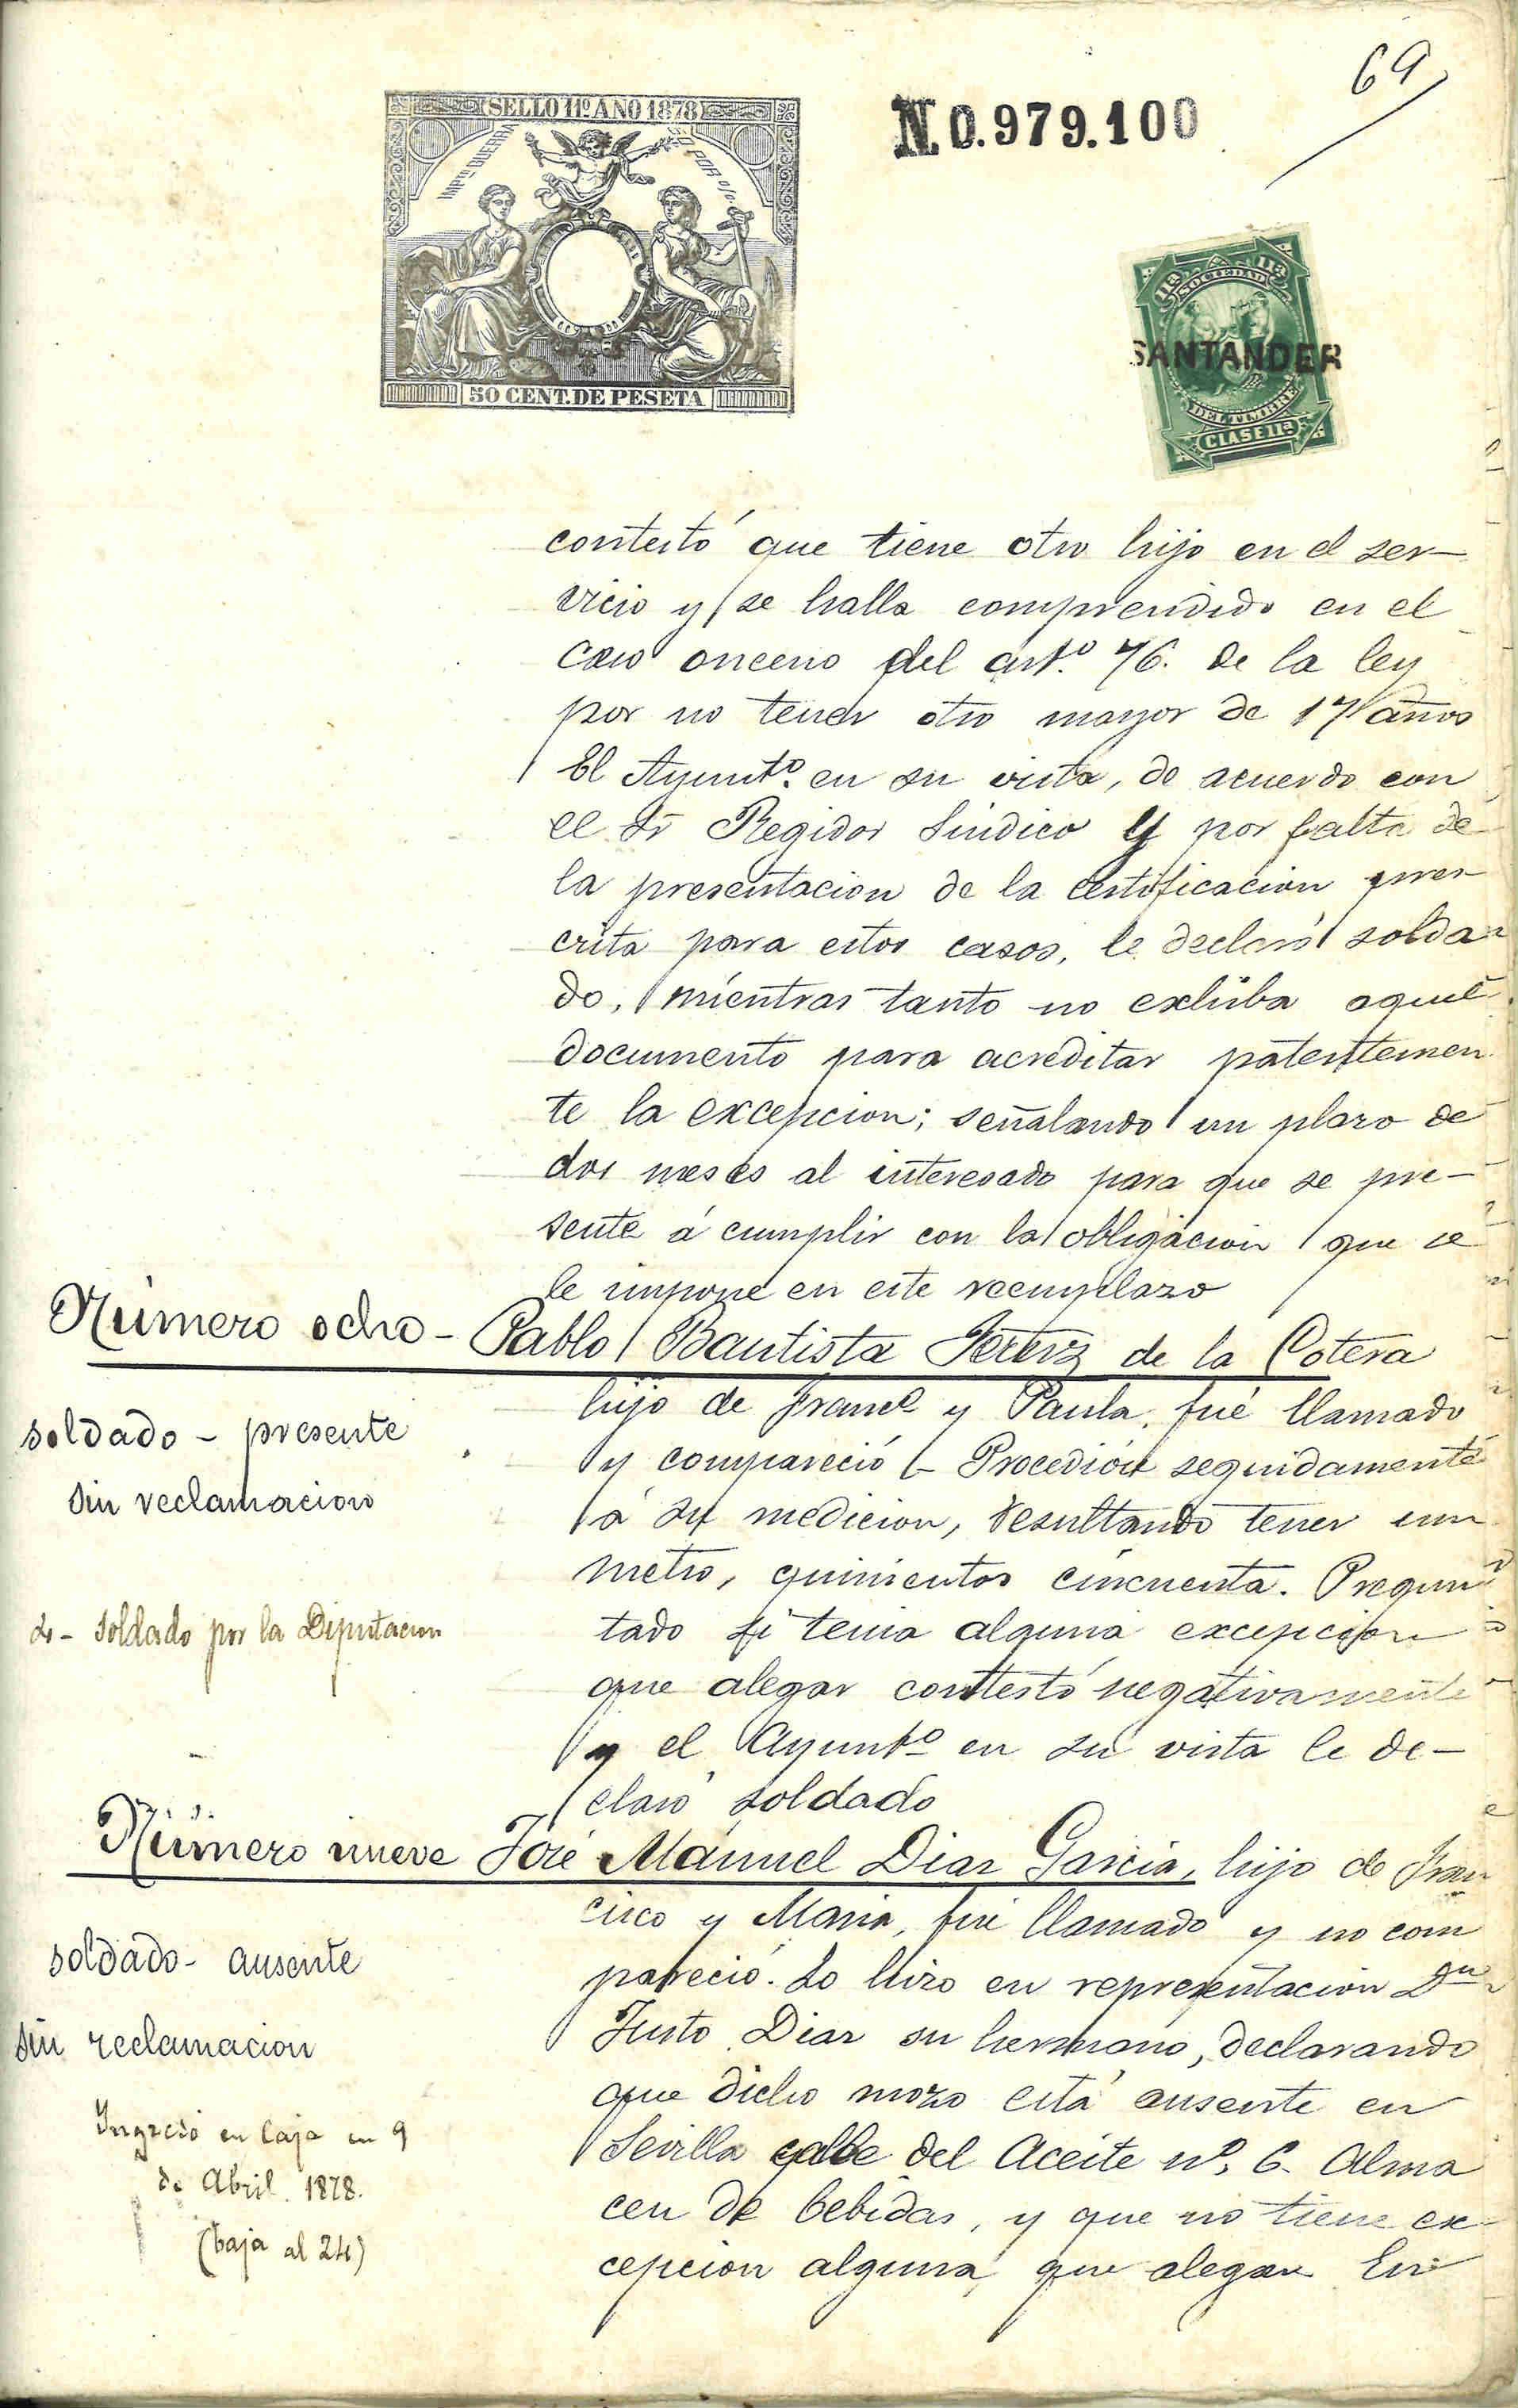 69
SELLO 11º AÑO 1878
N.0.979.100
IMPTO GUERRA
50 POR 0/0
50 CENT. DE PESETA
118 118
SOCIEDAD
SANTANDER
DEL TIMBRE
CLASE 11ª
contestó que tiene otro hijo en el ser-
vicio y se halla comprendido en el
caso onceno del art.º 76. de la ley
por no tener otro mayor de 17 años
El Ayunt.º en su vista, de acuerdo con
el Sr Regidor Sindico y por falta de
la presentacion de la certificacion pres-
crita para estos casos, le declaró solda-
do, mientras tanto no exhiba aquel
documento para acreditar patentemen
te la excepcion; señalando un plazo de
dos meses al interesado para que se pre-
sente á cumplir con la obligacion que se
le impone en este reemplazo
Número ocho- Pablo Bautista de la Cotera
soldado - presente
sin reclamacion
hijo de Franco y Paula, fué llamado
y compareció - seguidamente
á su medicion, resultando tener un
metro, quinientos cincuenta. Pregun
tado si tenia alguna excepcion
que alegar contestó negativamente
y el Ayunt.º en su vista le de-
claró soldado
soldado por la Diputacion
Número nueve José Manuel Diaz Garcia, hijo de Fran
cisco y Maria, fué llamado y no com
pareció. Lo hizo en representacion Dn
Justo Diaz su hermano, declarando
que dicho mozo está ausente en
Sevilla calle del Aceite nº. 6. Alma
cen de bebidas, y que no tiene ex-
cepcion alguna que alegar En
soldado- ausente
sin reclamacion
Ingresó en Caja en 9
de Abril. 1878.
(baja al 24)